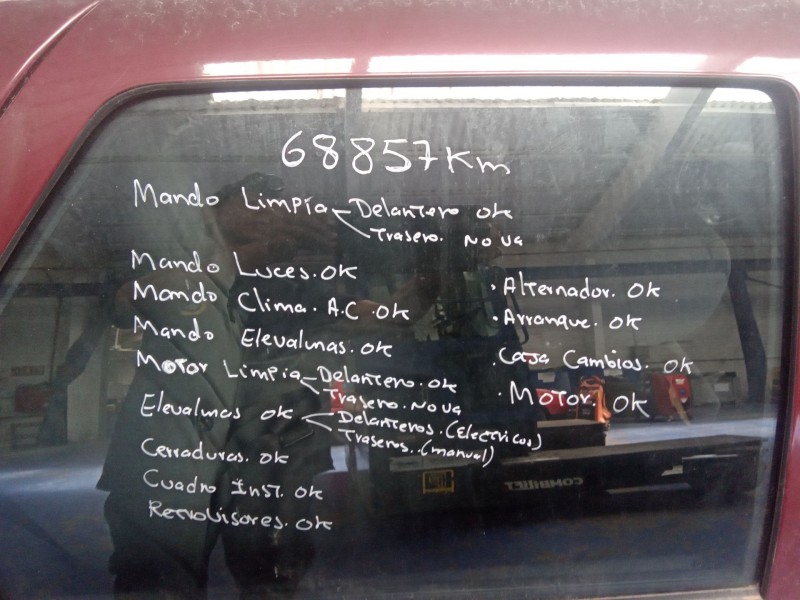 68857Km
Mando Limpia Delantero OK
Trasero. NO VA
Mando Luces. OK
Mando Clima. A.C. OK
Mando Elevalunas. OK
Motor Limpia Delantero. OK
Trasero. NO VA
Elevalunas OK Delanteros. (Electricos)
Traseros. (manual)
Cerraduras. OK
Cuadro Inst. OK
Retrovisores. OK
· Alternador. OK
· Arranque. OK
. Caja Cambios. OK
· Motor. OK
COMBILIFT